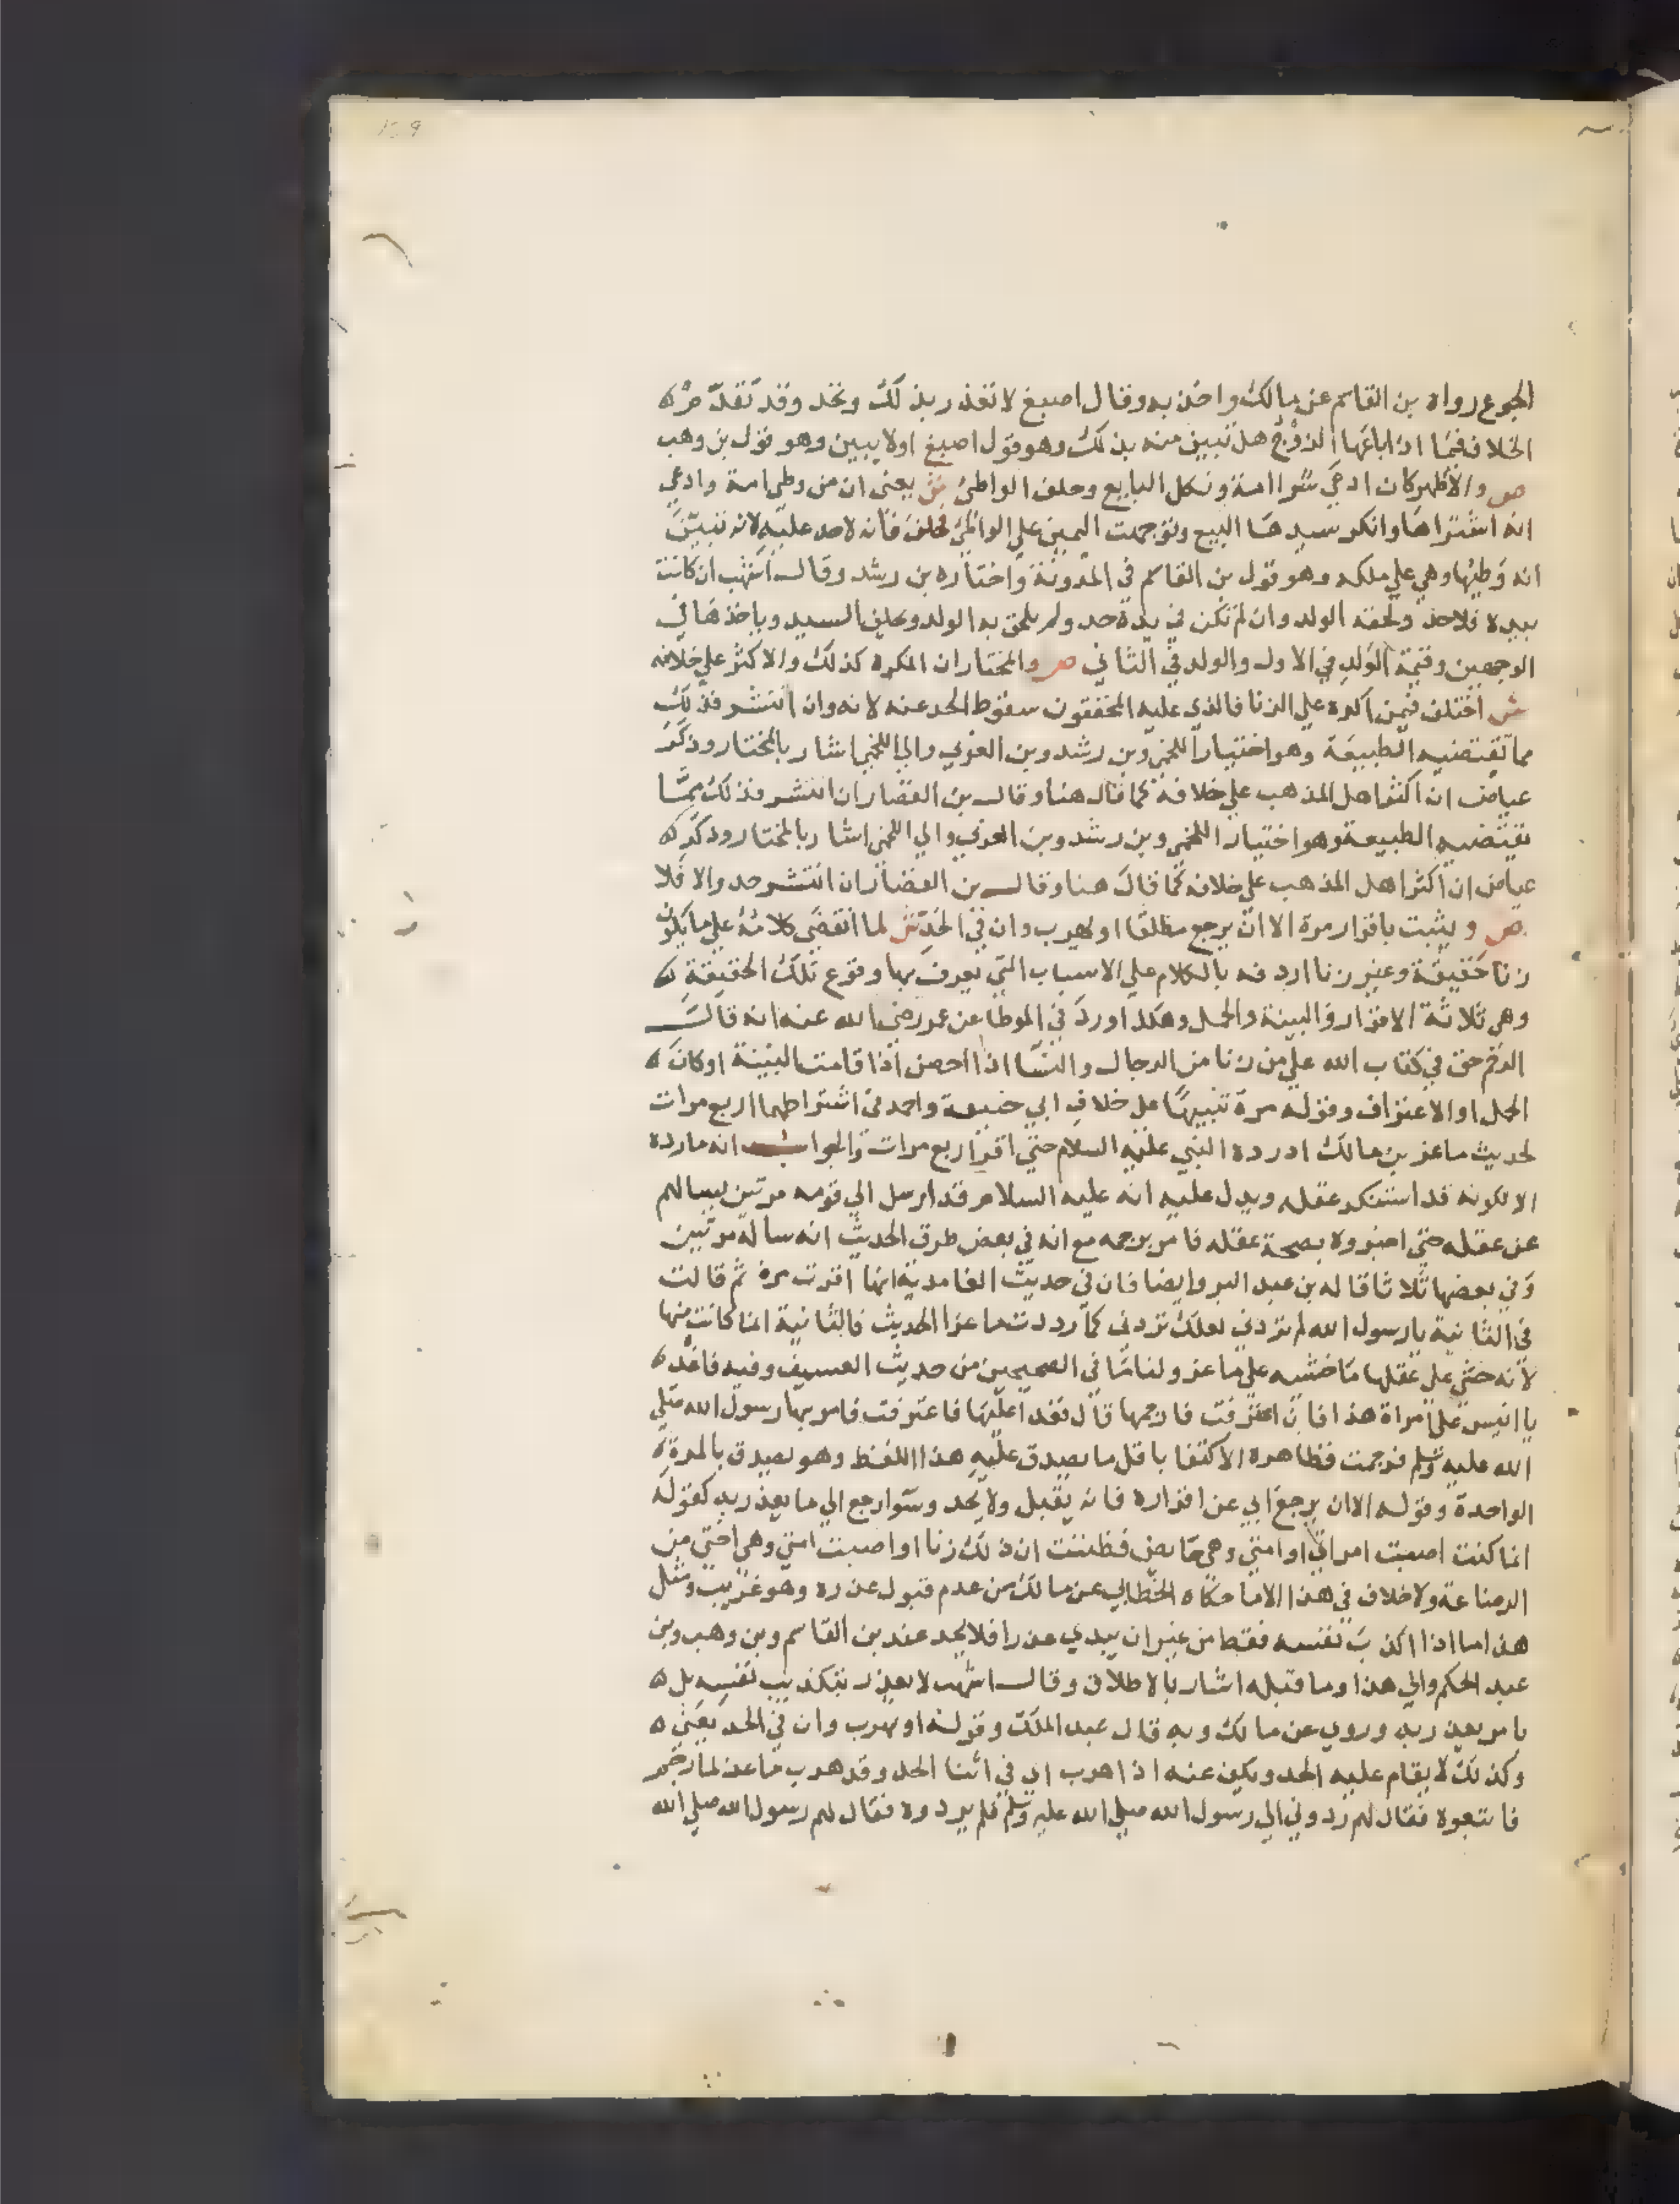 الجوع رواه بن القاسم عن مالك واخذ به وقال اصبغ لا تعذر بذلك وتحد وقد تقدم
الخلاف فيما اذا باعها الزوج هل تبين منه بذلك وهو قول اصبغ اولا يبين وهو قول بن وهب
ص والاظهر كان ادعي شرا امة ونكل البايع وحلف الواطئ ش يعني ان من وطي امة وادعي
انه اشتراها وانكر سيدها البيع وتوجهت اليمين علي الواطئ فحلف فانه لاحد عليه لانه تبين
انه وطيها وهي علي ملكه وهو قول بن القاسم في المدونة واختاره بن رشد وقال اشهب ان كانت
بيده فلاحد ولحقه الولد وان لم تكن في يده حد ولم يلحق به الولد ويحلف السيد وياخذها في
الوجهين وقيمة الولد في الاول والولد في الثاني ص والمختار ان المكره كذلك والاكثر علي خلافه
ش اختلف فيمن اكره علي الزنا فالذي عليه المحققون سقوط الحد عنه لانه وان انتشر فذلك
مما تقتضيه الطبيعة وهو اختيار اللخمي وبن رشد وبن العربي والي اللخمي اشار بالمختار وذكر
عياض ان اكثر اهل المذهب علي خلافه كما قال هنا وقال بن القصار ان انتشر فذلك مما
تقتضيه الطبيعة وهو اختيار اللخمي وبن رشد وبن العربي والي اللخمي اشار بالمختار وذكر
عياض ان اكثر اهل المذهب علي خلافه كما قال هنا وقال بن القصار ان انتشر حد والا فلا
ص ويثبت باقرار مرة الا ان يرجع مطلقا او يهرب وان في الحد ش لما انقضي كلامه علي ما يكون
زنا حقيقة وغير زنا اردفه بالكلام علي الاسباب التي يعرف بها وقوع تلك الحقيقة
وهي ثلاثة الاقرار والبينة والحمل وهكذا ورد في الموطا عن عمر رضي الله عنه انه قال
الرجم حق في كتاب الله علي من زنا من الرجال والنسا اذا احصن اذا قامت البينة او كان
الحمل او الاعتراف وقوله مرة تنبيها علي خلاف ابي حنيفة واحمد في اشتراطهما اربع مرات
لحديث ماعز بن مالك اذ رده النبي عليه السلام حتي اقر اربع مرات والجواب انه ما رده
الا لكونه قد استنكر عقله ويدل عليه انه عليه السلام قد ارسل الي قومه مرتين يسالهم
عن عقله حتي اخبروه بصحة عقله فامر برجمه مع انه في بعض طرق الحديث انه ساله مرتين
وفي بعضها ثلاثا قاله بن عبد البر وايضا فان في حديث الغامدية انها اقرت مرة ثم قالت
في الثانية يا رسول الله لم تردني لعلك تردني كما رددت ماعزا الحديث فالثانية انما كانت منها
لانه خشي علي عقلها ما خشيه علي ماعز ولنا ما في الصحيحين من حديث العسيف وفيه فاغد
يا انيس علي امراة هذا فان اعترفت فارجمها قال فغدا عليها فاعترفت فامر بها رسول الله صلي
الله عليه وسلم فرجمت فظاهره الاكتفا باقل ما يصدق عليه هذا اللفظ وهو يصدق بالمرة
الواحدة وقوله الا ان يرجع اي عن اقراره فانه يقبل ولا يحد وسوا رجع الي ما يعذر به كقوله
انما كنت اصبت امراتي او امتي وهي حايض فظننت ان ذلك زنا او اصبت امتي وهي اختي من
الرضاعة ولا خلاف في هذا الا ما حكاه الخطابي عن مالك من عدم قبول عذره وهو غريب ومثل
هذا اما اذا اكذب نفسه فقط من غير ان يبدي عذرا فلا يحد عند بن القاسم وبن وهب وبن
عبد الحكم والي هذا وما قبله اشار بالاطلاق وقال اشهب لا يعذر بتكذيب نفسه بل
بامر يعذر به وروي عن مالك وبه قال عبد الملك وقوله او يهرب وان في الحد يعني
وكذلك لا يقام عليه الحد ويكف عنه اذا هرب اي في اثنا الحد وقد هرب ماعز لما رجم
فاتبعوه فقال لهم ردوني الي رسول الله صلي الله عليه وسلم فلم يردوه فقال لهم رسول الله صلي الله